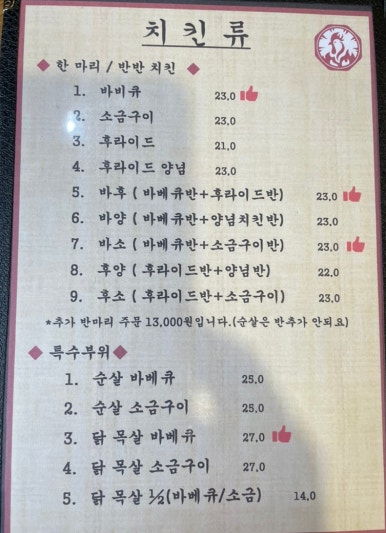 치킨류
◆ 한 마리 / 반반 치킨 ◆
1. 바비큐 23.0
2. 소금구이 23.0
3. 후라이드 21.0
4. 후라이드 양념 23.0
5. 바후 ( 바베큐반+후라이드반) 23.0
6. 바양 ( 바베큐반+양념치킨반) 23.0
7. 바소 ( 바베큐반+소금구이반) 23.0
8. 후양 ( 후라이드반+양념반) 22.0
9. 후소 ( 후라이드반+소금구이) 23.0
*추가 반마리 주문 13,000원입니다.(순살은 반추가 안되요)
◆ 특수부위◆
1. 순살 바베큐 25.0
2. 순살 소금구이 25.0
3. 닭 목살 바베큐 27.0
4. 닭 목살 소금구이 27.0
5. 닭 목살 ½(바베큐/소금) 14.0